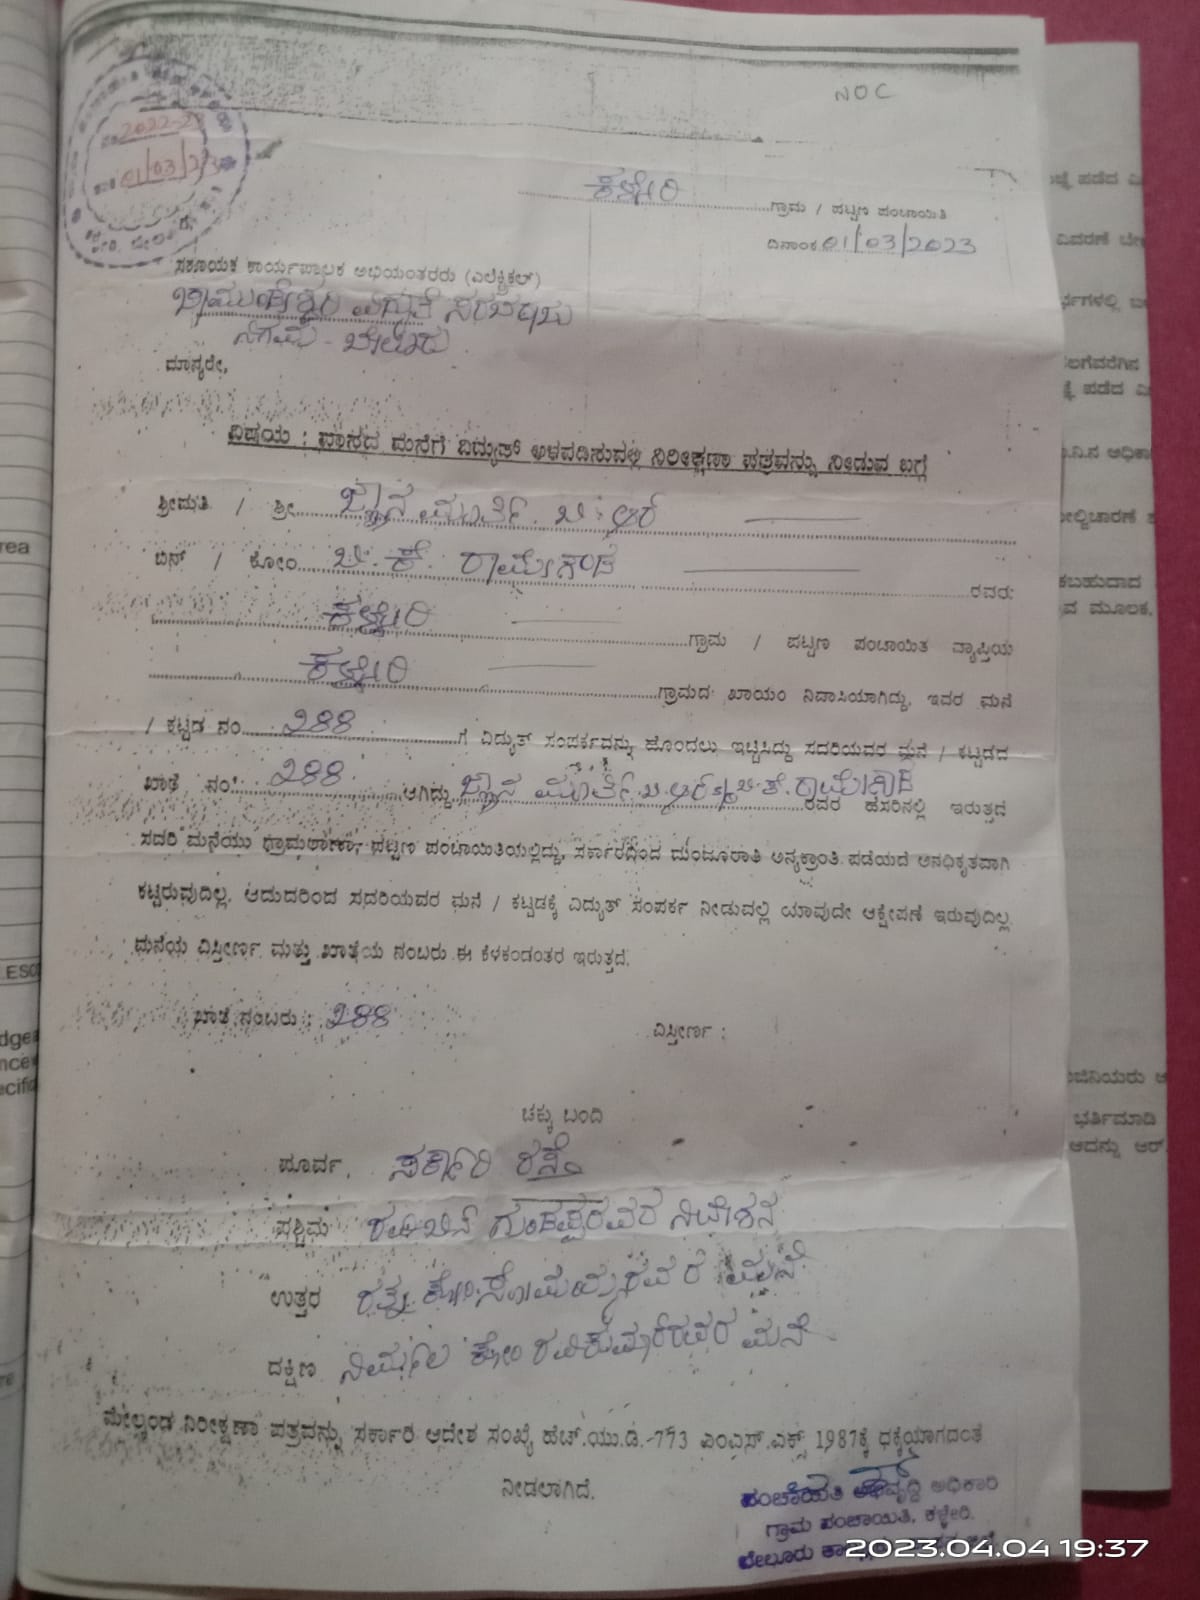 NOC
2022-23
01/03/23
ಕಳ್ಳೇರಿ
ಗ್ರಾಮ / ಪಟ್ಟಣ ಪಂಚಾಯಿತಿ
ದಿನಾಂಕ 01/03/2023
ಸಹಾಯಕ ಕಾರ್ಯಪಾಲಕ ಅಭಿಯಂತರರು (ಎಲೆಕ್ಟ್ರಿಕಲ್)
ಚಾಮುಂಡೇಶ್ವರಿ ವಿದ್ಯುತ್ ಸರಬರಾಜು
ನಿಗಮ - ಬೇಲೂರು
ಮಾನ್ಯರೇ,
ವಿಷಯ : ವಾಸದ ಮನೆಗೆ ವಿದ್ಯುತ್ ಅಳವಡಿಸುವಲ್ಲಿ ನಿರೀಕ್ಷಣಾ ಪತ್ರವನ್ನು ನೀಡುವ ಬಗ್ಗೆ
ಶ್ರೀಮತಿ / ಶ್ರೀ ಜ್ಞಾನ ಮೂರ್ತಿ. ಬಿ. ಆರ್
ಬಿನ್ / ಕೋಂ ಬಿ. ಕೆ. ರಾಮೇಗೌಡ ರವರು
ಕಳ್ಳೇರಿ ಗ್ರಾಮ / ಪಟ್ಟಣ ಪಂಚಾಯಿತಿ ವ್ಯಾಪ್ತಿಯ
ಕಳ್ಳೇರಿ ಗ್ರಾಮದ ಖಾಯಂ ನಿವಾಸಿಯಾಗಿದ್ದು, ಇವರ ಮನೆ
/ ಕಟ್ಟಡ ನಂ. ೨೮೮ ಗೆ ವಿದ್ಯುತ್ ಸಂಪರ್ಕವನ್ನು ಹೊಂದಲು ಇಚ್ಚಿಸಿದ್ದು ಸದರಿಯವರ ಮನೆ / ಕಟ್ಟಡದ
ಖಾತೆ ನಂ. ೨೮೮ ಆಗಿದ್ದು ಜ್ಞಾನ ಮೂರ್ತಿ.ಬಿ.ಆರ್ s/o ಬಿ.ಕೆ.ರಾಮೇಗೌಡ ರವರ ಹೆಸರಿನಲ್ಲಿ ಇರುತ್ತದೆ
ಸದರಿ ಮನೆಯು ಗ್ರಾಮಠಾಣಾ, ಪಟ್ಟಣ ಪಂಚಾಯಿತಿಯಲ್ಲಿದ್ದು, ಸರ್ಕಾರದಿಂದ ಮಂಜೂರಾತಿ ಅನ್ಯಕ್ರಾಂತಿ ಪಡೆಯದೆ ಅನಧಿಕೃತವಾಗಿ
ಕಟ್ಟಿರುವುದಿಲ್ಲ. ಆದುದರಿಂದ ಸದರಿಯವರ ಮನೆ / ಕಟ್ಟಡಕ್ಕೆ ವಿದ್ಯುತ್ ಸಂಪರ್ಕ ನೀಡುವಲ್ಲಿ ಯಾವುದೇ ಆಕ್ಷೇಪಣೆ ಇರುವುದಿಲ್ಲ.
ಮನೆಯ ವಿಸ್ತೀರ್ಣ ಮತ್ತು ಖಾತೆಯ ನಂಬರು ಈ ಕೆಳಕಂಡಂತರ ಇರುತ್ತದೆ.
ಖಾತೆ ನಂಬರು : ೨೮೮
ವಿಸ್ತೀರ್ಣ :
ಚಕ್ಕು ಬಂದಿ
ಪೂರ್ವ. ಸರ್ಕಾರಿ ರಸ್ತೆ
ಪಶ್ಚಿಮ ರವಿ ಬಿನ್ ಗುಂಡಪ್ಪರವರ ನಿವೇಶನ
ಉತ್ತರ ರತ್ನ ಕೋಂ ಸೋಮಯ್ಯರವರ ಮನೆ
ದಕ್ಷಿಣ ನಿರ್ಮಲ ಕೋಂ ರವಿಕುಮಾರರವರ ಮನೆ
ಮೇಲ್ಕಂಡ ನಿರೀಕ್ಷಣಾ ಪತ್ರವನ್ನು ಸರ್ಕಾರಿ ಆದೇಶ ಸಂಖ್ಯೆ ಹೆಚ್.ಯು.ಡಿ.-773 ಎಂಎಸ್.ಎಕ್ಸ್ 1987ಕ್ಕೆ ಧಕ್ಕೆಯಾಗದಂತೆ
ನೀಡಲಾಗಿದೆ.
ಪಂಚಾಯತಿ ಅಭಿವೃದ್ಧಿ ಅಧಿಕಾರಿ
ಗ್ರಾಮ ಪಂಚಾಯಿತಿ, ಕಳ್ಳೇರಿ.
ಬೇಲೂರು
2023.04.04 19:37